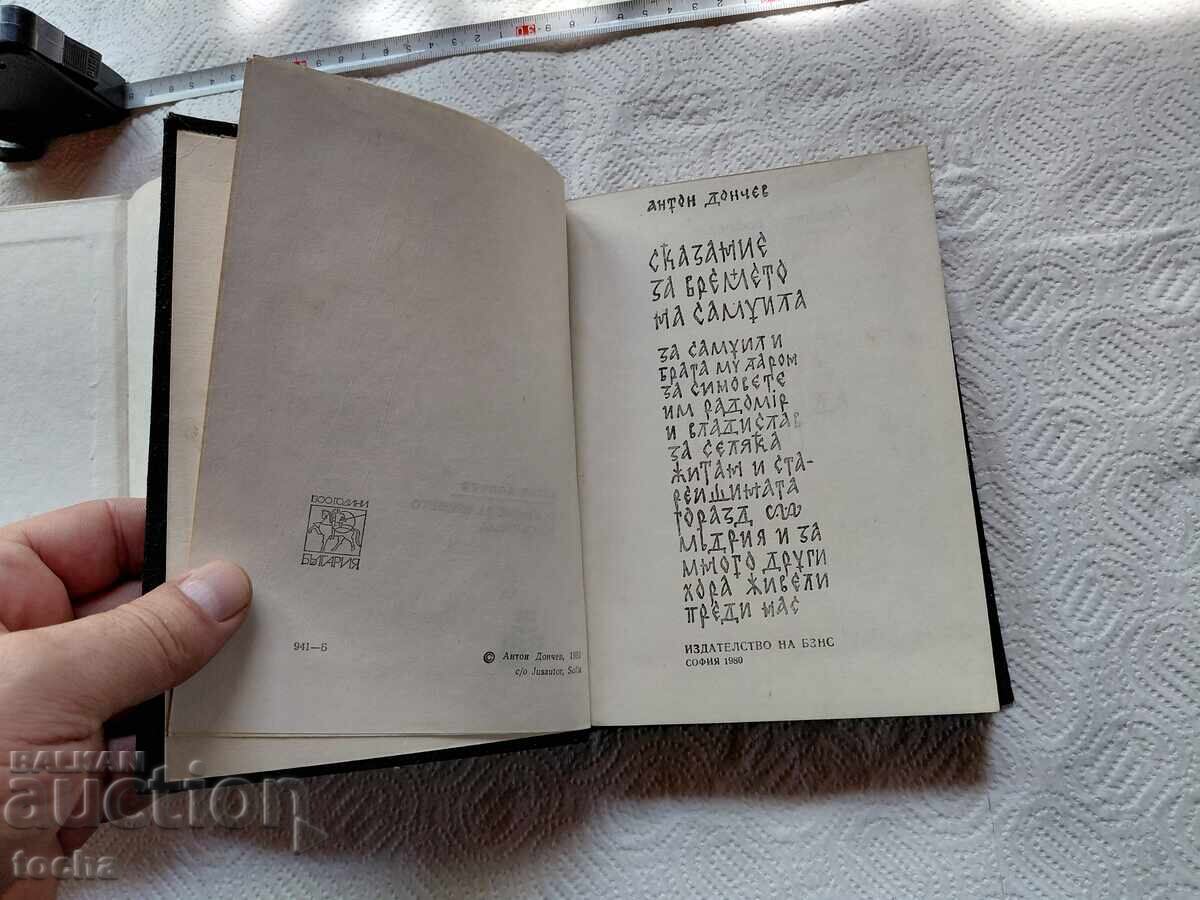 1300 ГОДИНИ
БЪЛГАРИЯ
941—Б
© Антон Дончев, 1980
c/o Jusautor, Sofia
АНТОН ДОНЧЕВ
СКАЗАНИЕ
ЗА ВРЕМЕТО
НА САМУИЛА
ЗА САМУИЛ И
БРАТА МУ ААРОН
ЗА СИНОВЕТЕ
ИМ РАДОМІР
И ВЛАДИСЛАВ
ЗА СЕЛЯКА
ЖИТАН И СТА-
РЕЙШИНАТА
ГОРАЗД СЪ
МЪДРИЯ И ЗА
МНОГО ДРУГИ
ХОРА ЖИВЕЛИ
ПРЕДИ НАС
ИЗДАТЕЛСТВО НА БЗНС
СОФИЯ 1980
BALKAN
auction
tocha